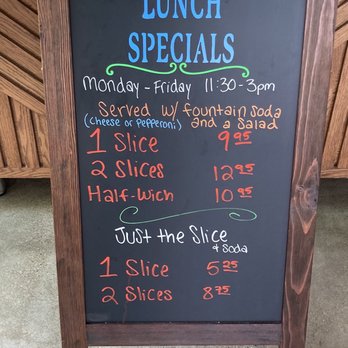 LUNCH
SPECIALS
Monday - Friday 11:30-3pm
Served w/ fountain soda
(cheese or Pepperoni) and a Salad
1 Slice 9.95
2 Slices 12.95
Half-Wich 10.95
Just the Slice
& Soda
1 Slice 5.25
2 Slices 8.75